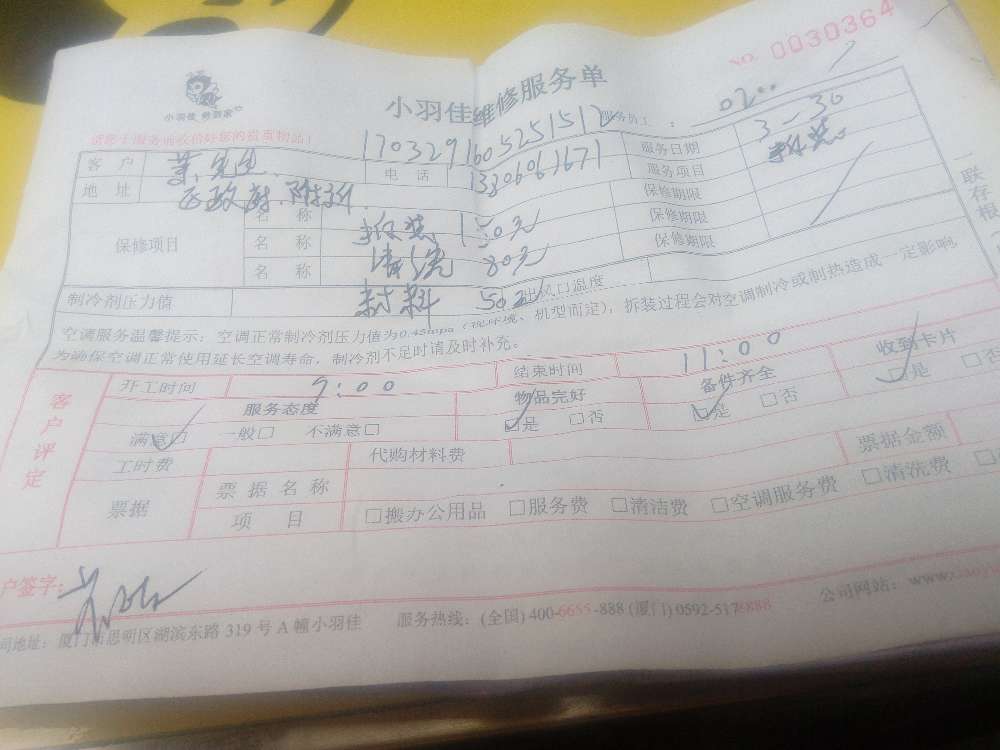 NO. 0030364
小羽佳 劳到家
小羽佳维修服务单
请您于服务前收拾好您的贵重物品！
170329160525151 服务员工：
客户 先生 电话 13306061671 服务日期 3-30
地址 服务项目 拆装
保修项目 名称 拆装 150元 保修期限
名称 清洗 80元 保修期限
名称 保修期限
制冷剂压力值 材料 50元 出风口温度
空调服务温馨提示：空调正常制冷剂压力值为0.45mpa（视环境、机型而定），拆装过程会对空调制冷或制热造成一定影响
为确保空调正常使用延长空调寿命，制冷剂不足时请及时补充。
一联存根
客户评定
开工时间 9:00 结束时间 11:00
服务态度 物品完好 备件齐全 收到卡片
满意□ 一般□ 不满意□ □是 □否 □是 □否 □是 □否
工时费 代购材料费 票据金额
票据 票据名称
项目 □搬办公用品 □服务费 □清洁费 □空调服务费 □清洗费
户签字：
司地址：厦门市思明区湖滨东路 319 号 A 幢小羽佳 服务热线：(全国) 400-6655-888 (厦门) 0592-5179888 公司网站：